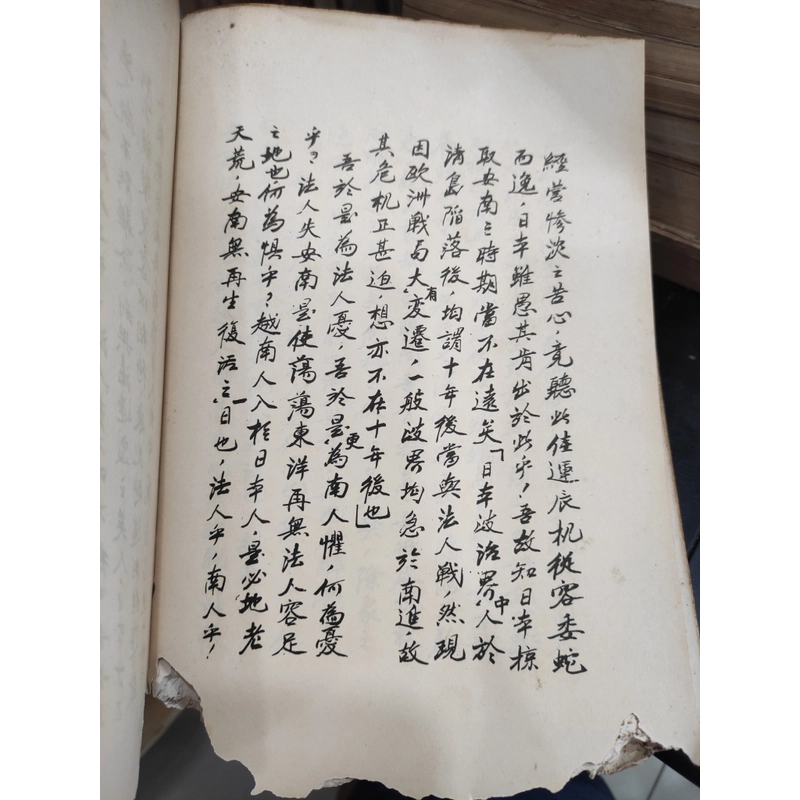 經营慘淡之苦心，竟聽此佳運辰机從容委蛇
而逸，日本雖愚其肯出於此乎！吾故知日本掠
取安南之時期當不在遠矣「日本政治界中人於
清島陷落後，均謂十年後當與法人戰，然現
因欧洲戰局大有变遷，一般政界均急於南進，故
其危机正甚迫，想亦不在十年後也」
吾於是為法人憂，吾於是更為南人懼，何為憂
乎？法人失安南是使蕩蕩東洋再無法人容足
之地也何為懼乎？越南人入於日本人，是必地老
天荒，安南無再生復活之一日也，法人乎，南人乎！